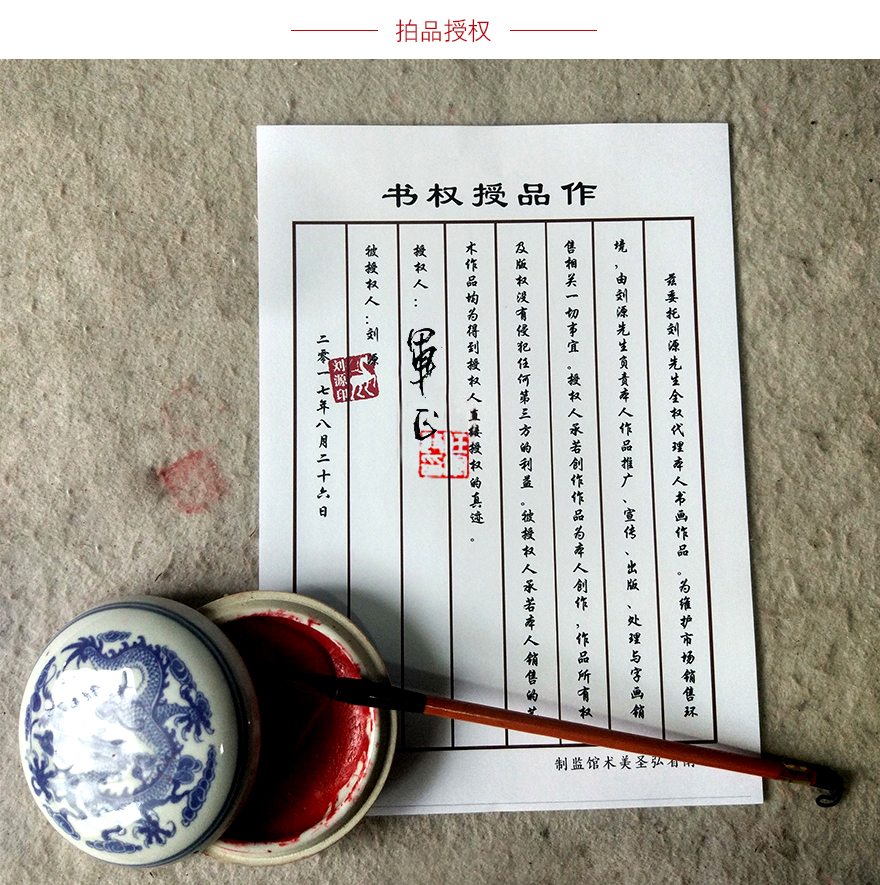 拍品授权
作品授权书
兹委托刘源先生全权代理本人书画作品。为维护市场销售环
境,由刘源先生负责本人作品推广、宣传、出版、处理与字画销
售相关一切事宜。授权人承若创作作品为本人创作,作品所有权
及版权没有侵犯任何第三方的利益。被授权人承若本人销售的艺
术作品均为得到授权人直接授权的真迹。
授权人:軍正
被授权人:刘源
刘源印
二零一七年八月二十六日
省弘圣美术馆监制